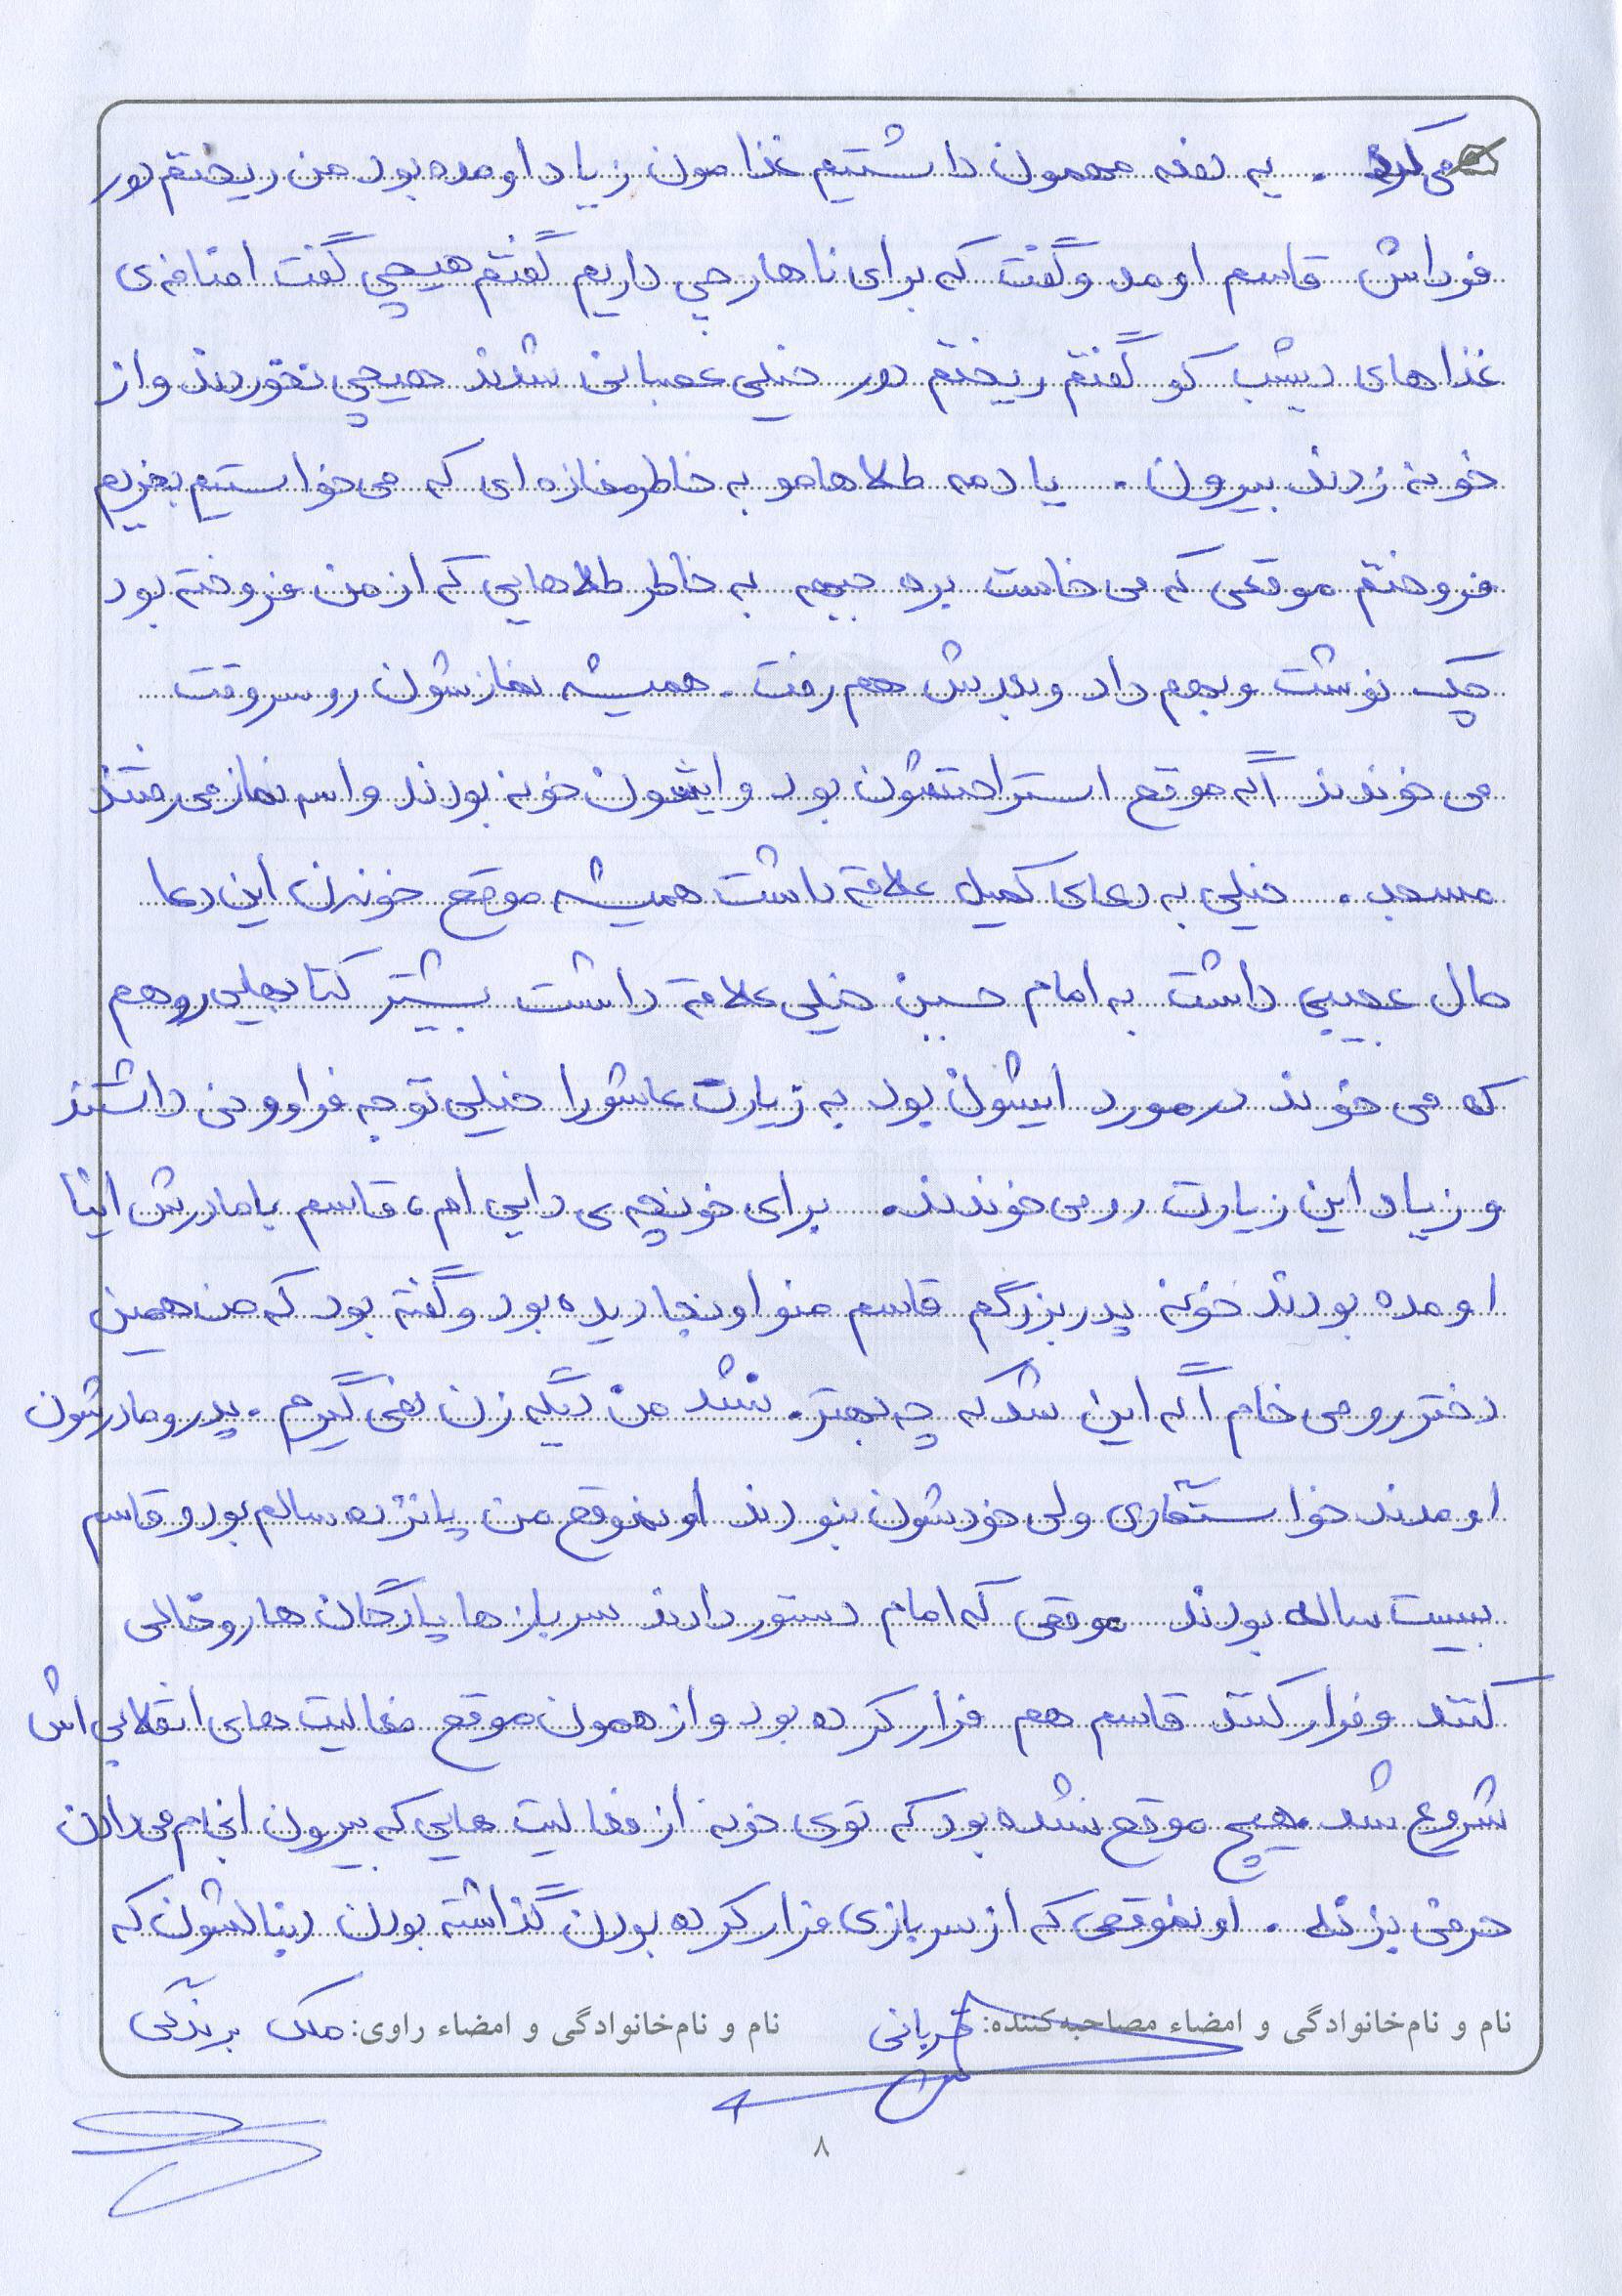 می کرد . یه دفعه مهمون داشتیم غذامون زیاد اومده بود من ریختم دور
فرداش قاسم اومد و گفت که برای ناهار چی داریم گفتم هیچی گفت اضافه‌ی
غذاهای دیشب کو گفتم ریختم دور خیلی عصبانی شدند هیچی نخوردند و از
خونه زدند بیرون . یادمه طلاهامو به خاطر مغازه‌ای که می خواستیم بخریم
فروختم موقعی که می خاست بره جبهه به خاطر طلاهایی که از من فروخته بود
چک نوشت و بهم داد و بعدش هم رفت . همیشه نمازشون رو سر وقت
می خوندند اگه موقع استراحتشون بود و ایشون خونه بودند واسه نماز می رفتند
مسجد . خیلی به دعای کمیل علاقه داشت همیشه موقع خوندن این دعا
حال عجیبی داشت به امام حسین خیلی علاقه داشت بیشتر کتابهایی رو هم
که می خوند در مورد ایشون بود به زیارت عاشورا خیلی توجه فراوونی داشتند
و زیاد این زیارت رو می خوندند. برای خونچه ی دایی ام، قاسم با مادرش اینا
اومده بودند خونه پدربزرگم قاسم منو اونجا دیده بود و گفته بود که من همین
دختر رو می خام اگه این شد که چه بهتر. نشد من دیگه زن نمی گیرم . پدر و مادرشون
اومدند خواستگاری ولی خودشون نبودند اونموقع من پانزده سالم بود و قاسم
بیست ساله بودند موقعی که امام دستور دادند سربازها پادگان ها رو خالی
کنند و فرار کنند قاسم هم فرار کرده بود و از همون موقع فعالیت های انقلابی اش
شروع شد هیچ موقع نشده بود که توی خونه از فعالیت هایی که بیرون انجام می دادن
حرفی بزنه . اونموقعی که از سربازی فرار کرده بودن گذاشته بودن دنبالشون که
نام و نام‌خانوادگی و امضاء مصاحبه‌کننده: قربانی نام و نام‌خانوادگی و امضاء راوی: ملک
۸